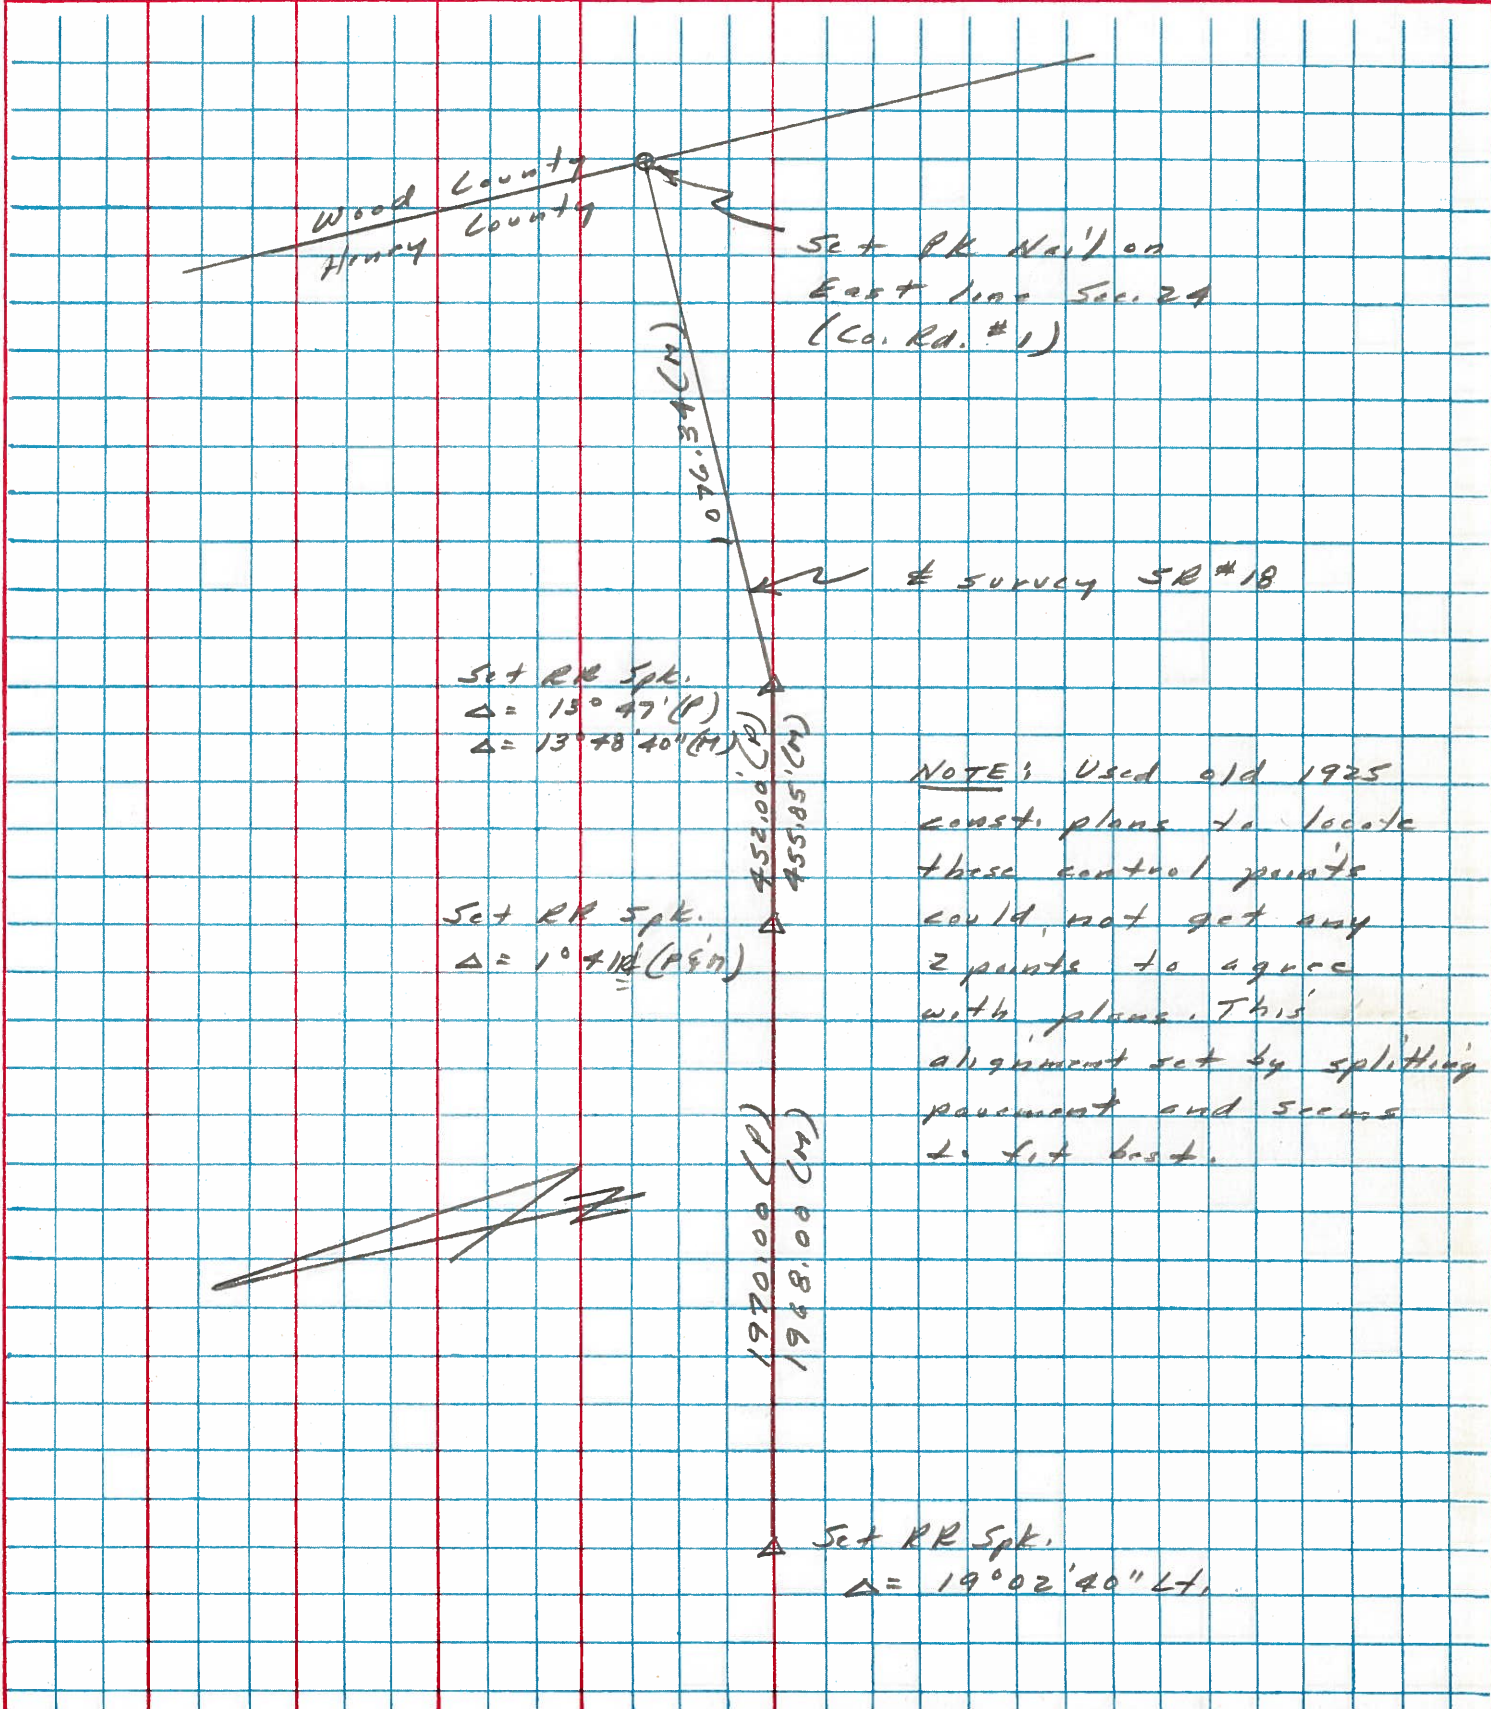 Wood County
Henry County
Set PK Nail on
East line Sec. 24
(Co. Rd. #1)
1076.34 (M)
℄ survey SR #18
Set RR Spk.
Δ = 13° 47' (P)
Δ = 13° 48' 40" (M)
452.00' (P)
455.85' (M)
NOTE: Used old 1925
const. plans to locate
these control points
could not get any
2 points to agree
with plans. This
alignment set by splitting
pavement and seems
to fit best.
Set RR Spk.
Δ = 1° 41' (P&M)
N
1970.00 (P)
1968.00 (M)
Set RR Spk.
Δ = 19° 02' 40" Lt.